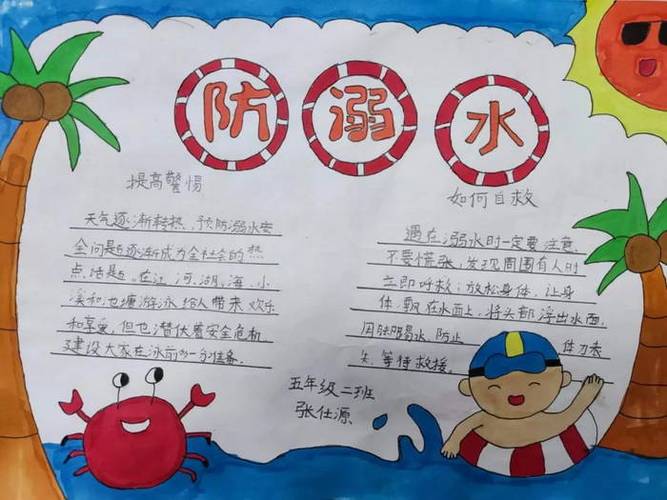 防溺水
提高警惕
天气逐渐转热,预防溺水安
全问题逐渐成为全社会的热
点话题。在江、河、湖、海、小
溪和池塘游泳给人带来欢乐
和享受,但也潜伏着安全危机
建设大家在泳前多一分准备。
如何自救
遇在溺水时一定要注意,
不要慌张,发现周围有人时
立即呼救;放松身体,让身
体飘在水面上,将头部浮出水面,
用脚踢水,防止 体力丧
失,等待救援。
五年级二班
张仕源